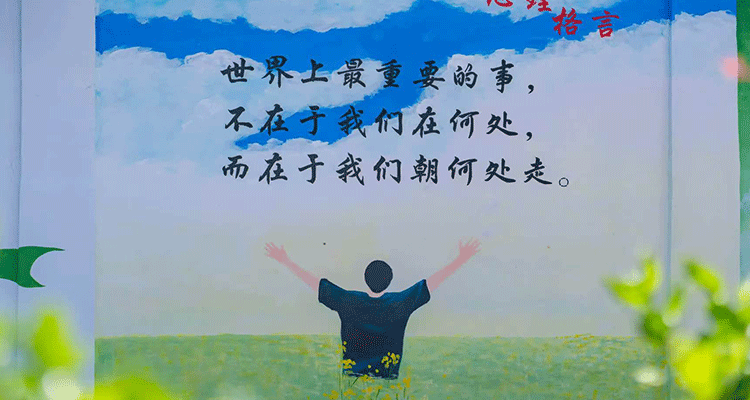 心理
格言
世界上最重要的事，
不在于我们在何处，
而在于我们朝何处走。